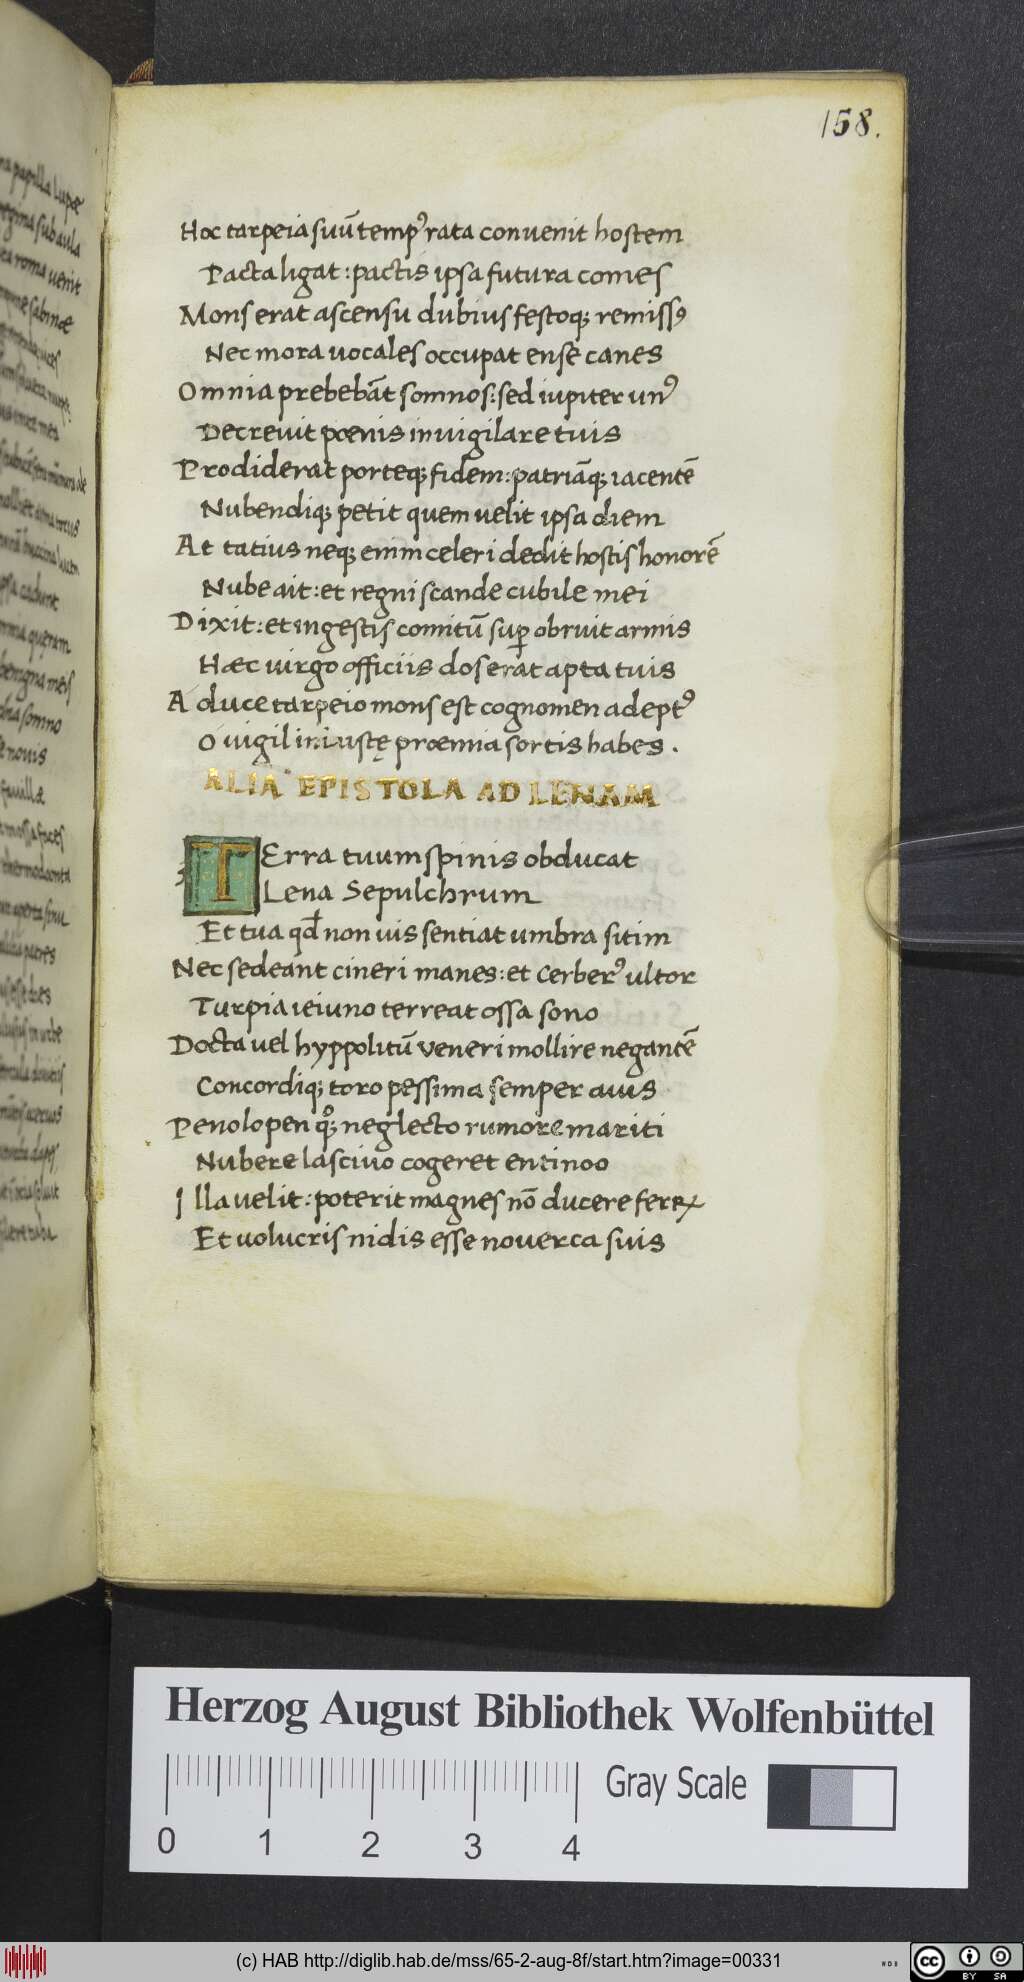 158.
Hoc tarpeia suū tempꝰ rata convenit hostem
Pacta ligat: pactis ipsa futura comes
Mons erat ascensu dubius festoqꝫ remissꝰ
Nec mora uocales occupat ense canes
Omnia prebebāt somnos: sed iupiter unꝰ
Decrevit pœnis invigilare tuis
Prodiderat porteqꝫ fidem: patriāqꝫ iacentē
Nubendiqꝫ petit quem uelit ipsa diem
At tatius neqꝫ enim celeri dedit hostis honorē
Nube ait: et regni scande cubile mei
Dixit: et ingestis comitū suꝑ obruit armis
Hæc uirgo officiis dos erat apta tuis
A duce tarpeio mons est cognomen adeptꝰ
O uigil iniustę prœmia sortis habes.
ALIA EPISTOLA AD LENAM
TErra tuum spinis obducat
Lena Sepulchrum
Et tua qđ non uis sentiat umbra sitim
Nec sedeant cineri manes: et Cerberꝰ ultor
Turpia ieiuno terreat ossa sono
Docta uel hyppolitū veneri mollire negantē
Concordiqꝫ toro pessima semper auis
Penolopen qͦꝫ neglecto rumore mariti
Nubere lascivo cogeret entinoo
Illa uelit: poterit magnes nō ducere ferꝝ
Et uolucris nidis esse nouerca suis
Herzog August Bibliothek Wolfenbüttel
0 1 2 3 4
Gray Scale
(c) HAB http://diglib.hab.de/mss/65-2-aug-8f/start.htm?image=00331
cc BY SA